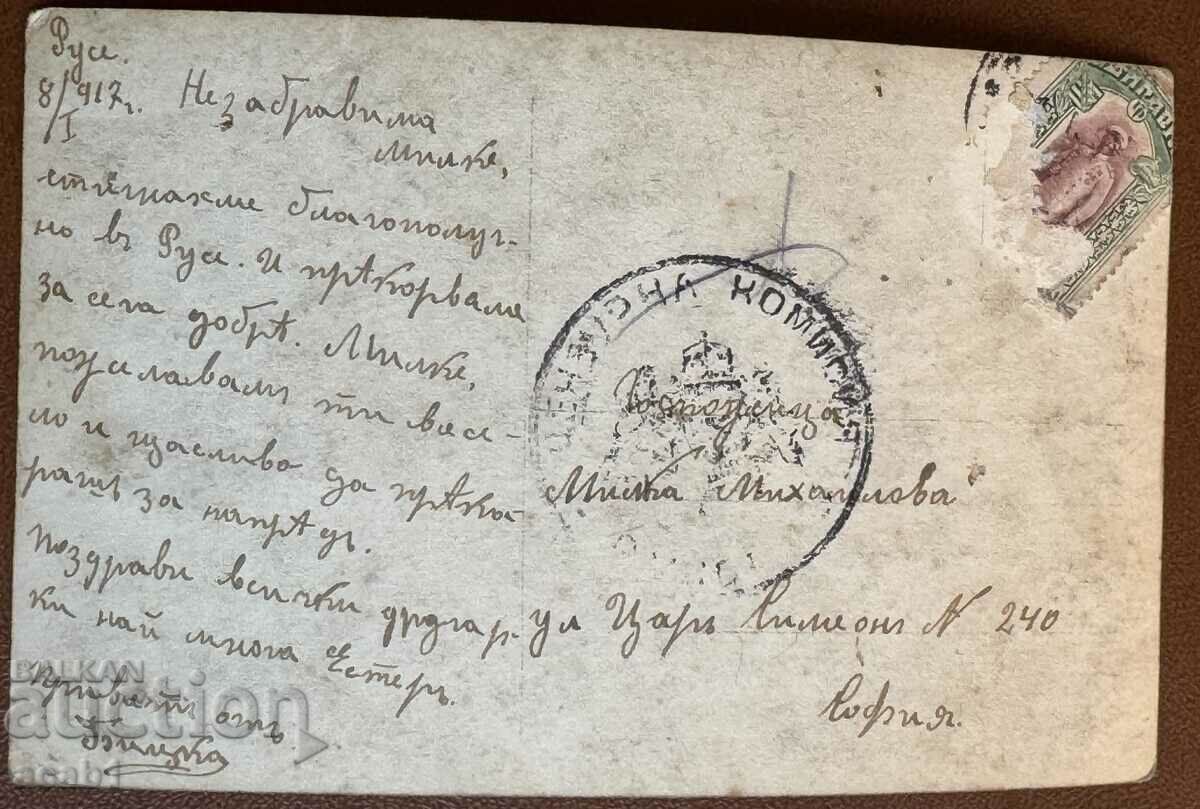 Русе.
8/I 917 г.
Незабравима
Милке,
стигнахме благополуч-
но въ Русе. И прѣкарваме
за сега добрѣ. Милке,
пожелавамъ ти весе-
ло и щасливо да прѣка-
рашъ за напрѣдъ.
Поздрави всички другар-
ки най много Естеръ.
Приветъ отъ
ЦЕНЗУРНА КОМИСИЯ
Госпожица
Милка Михайлова
ул Царь Симеонъ N 240
София.
BALKAN
auction
acab1